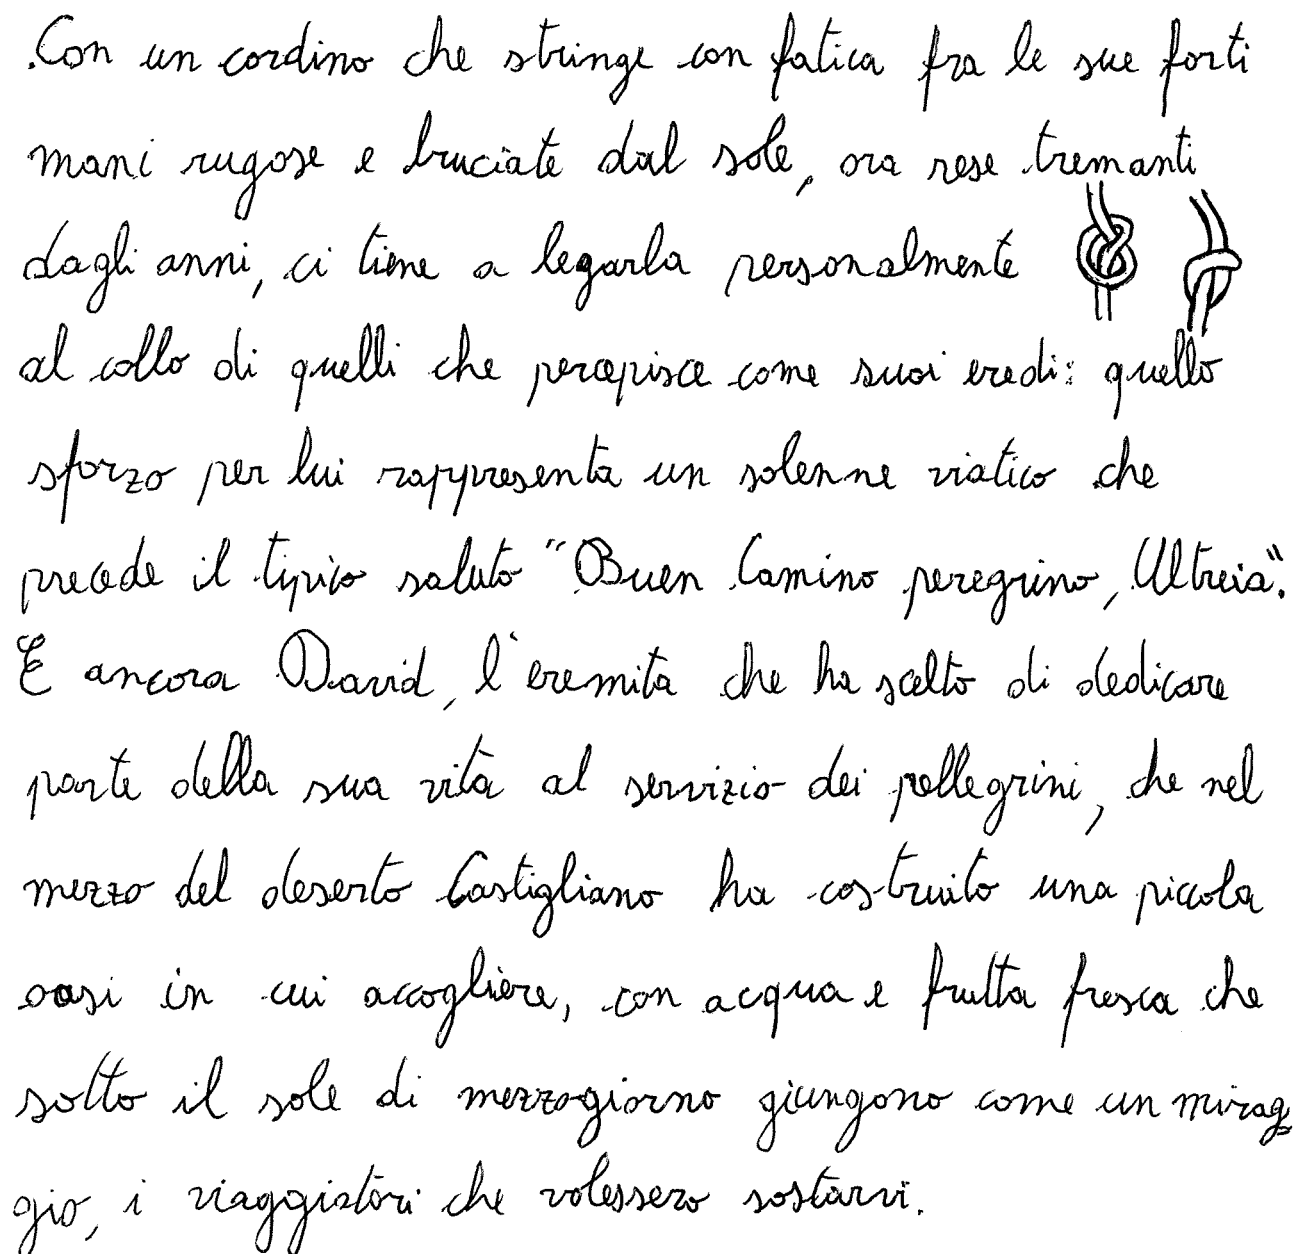 Con un cordino che stringe con fatica fra le sue forti
mani rugose e bruciate dal sole, ora rese tremanti
dagli anni, ci tiene a legarla personalmente
al collo di quelli che percepisce come suoi eredi: quello
sforzo per lui rappresenta un solenne viatico che
precede il tipico saluto "Buen Camino peregrino, Ultreia".
E ancora David, l'eremita che ha scelto di dedicare
parte della sua vita al servizio dei pellegrini, che nel
mezzo del deserto Castigliano ha costruito una piccola
oasi in cui accogliere, con acqua e frutta fresca che
sotto il sole di mezzogiorno giungono come un mirag
gio, i viaggiatori che volessero sostarvi.